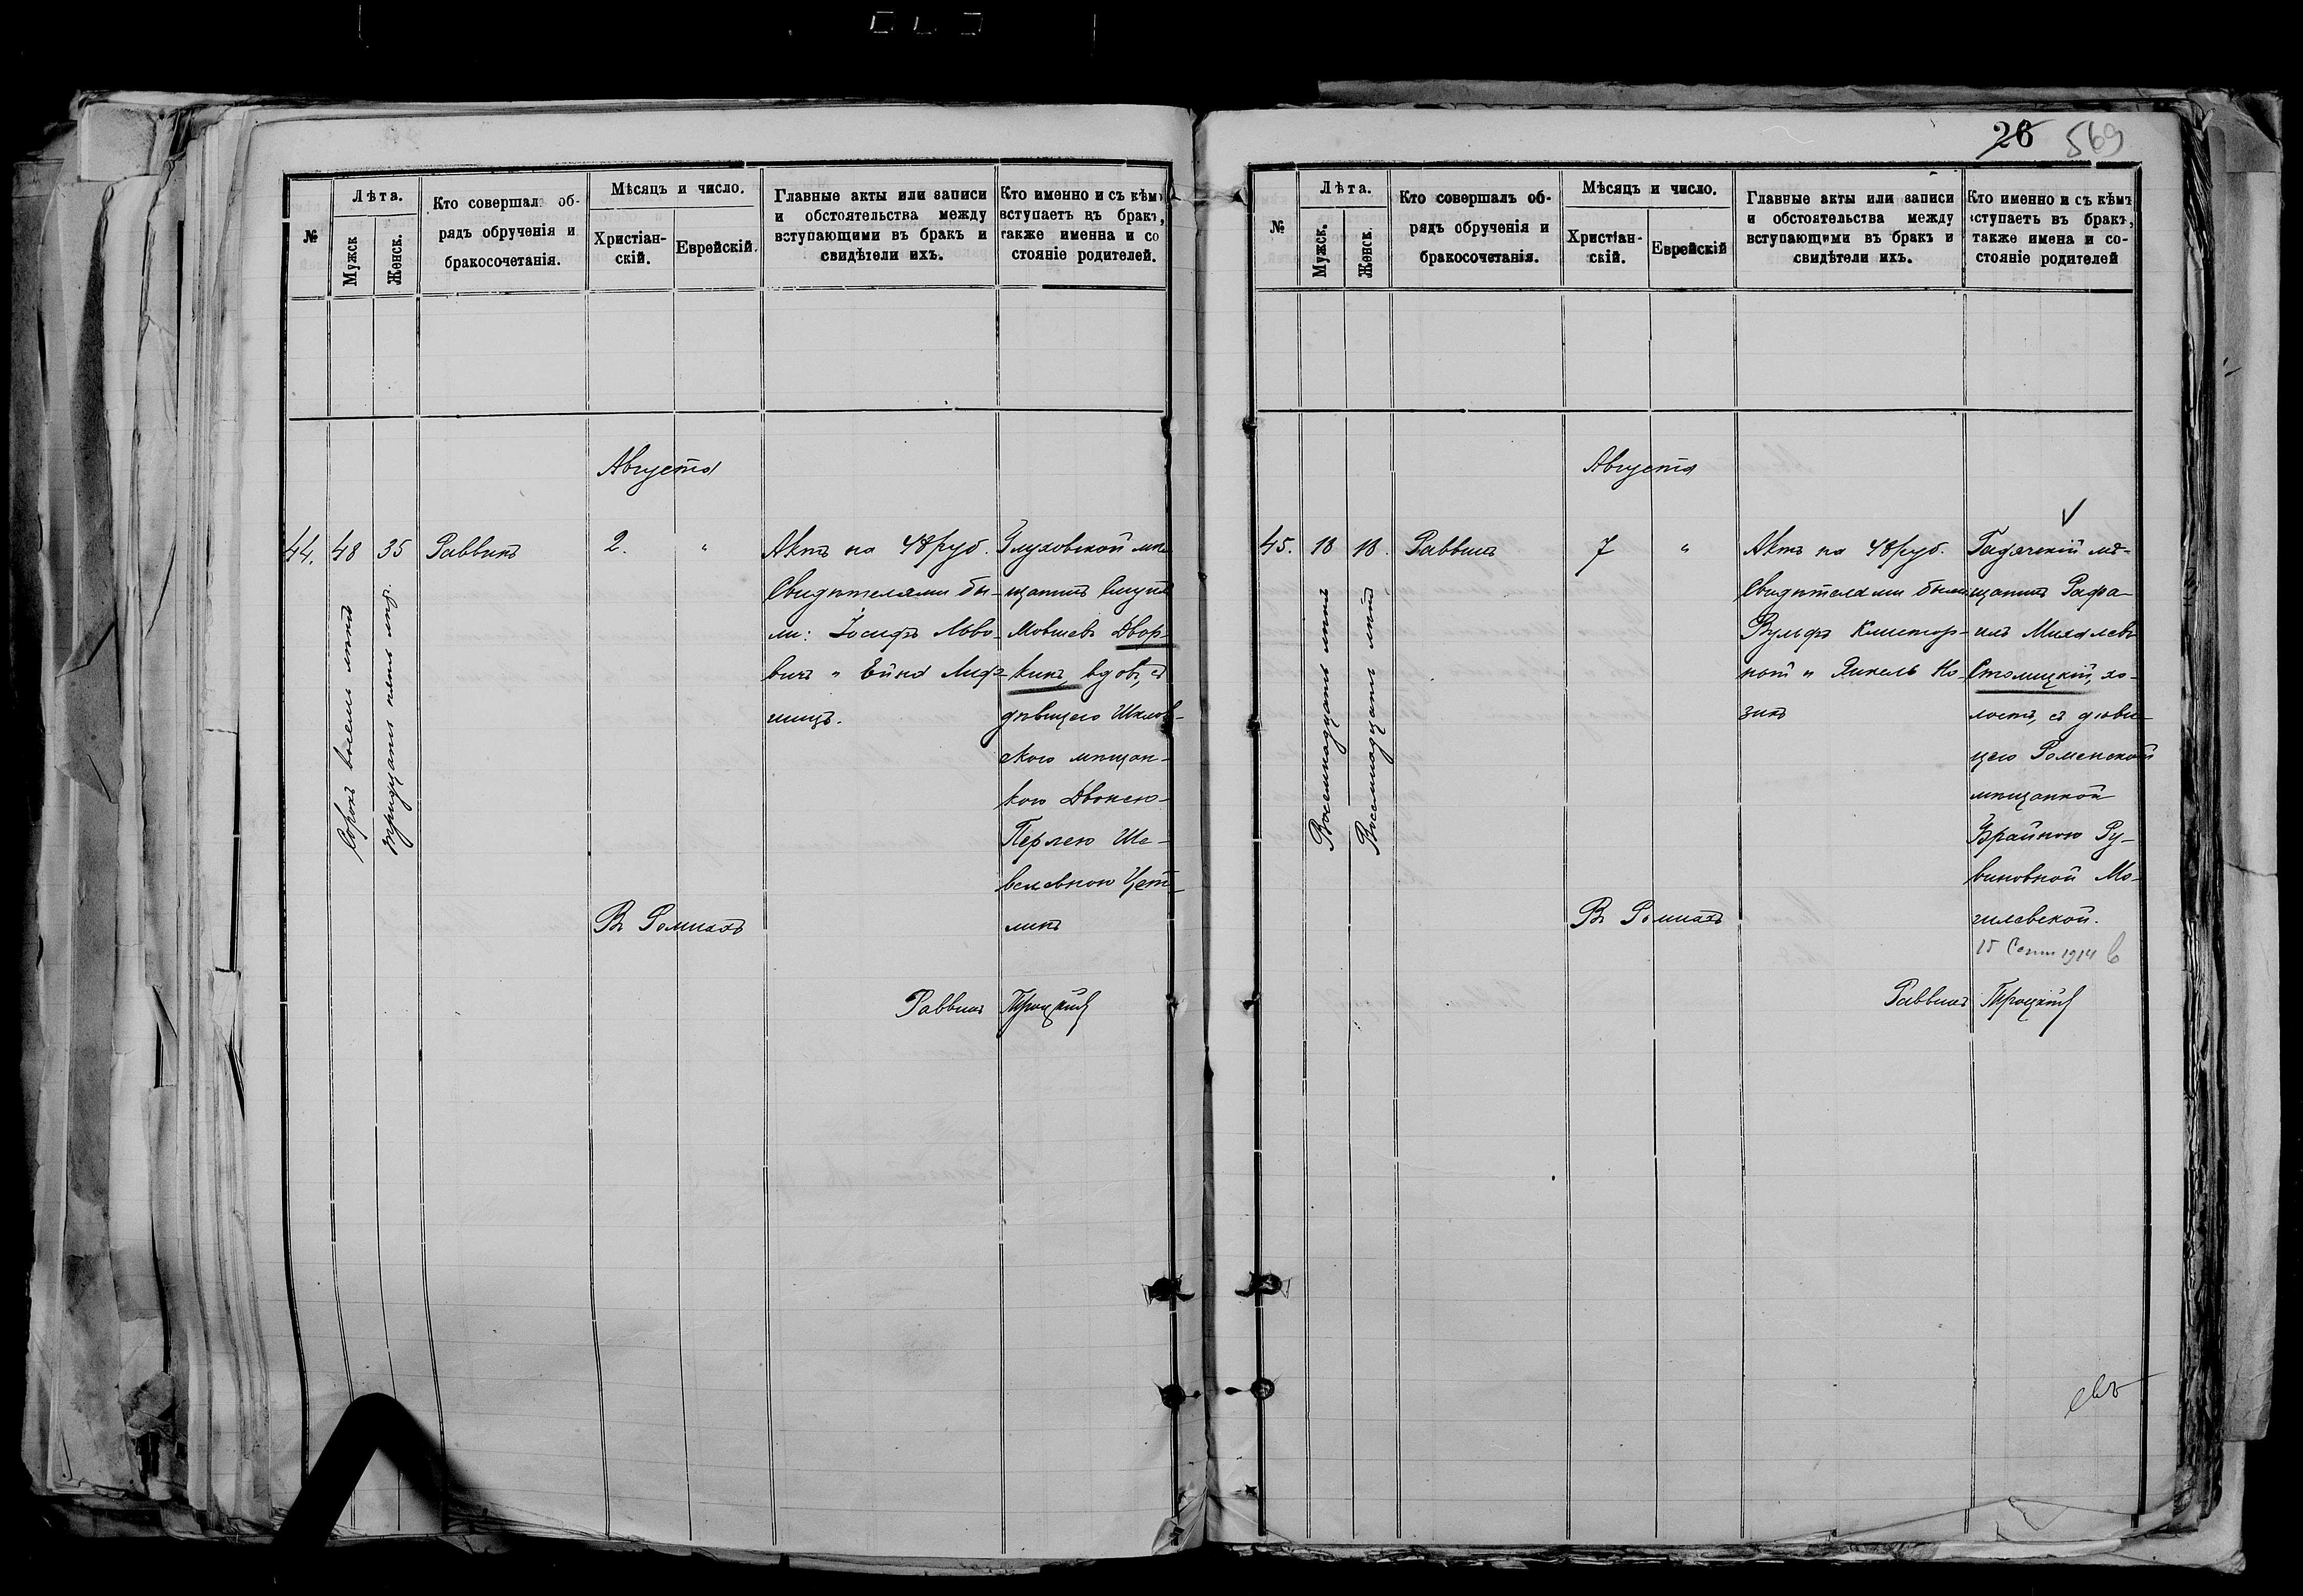 №
Лѣта.
Мужск
Женск.
Кто совершалъ об-
рядъ обрученія и
бракосочетанія.
Мѣсяцъ и число.
Христіан-
скій.
Еврейскій.
Главные акты или записи
и обстоятельства между
вступающими въ бракъ и
свидѣтели ихъ.
Кто именно и съ кѣмъ
вступаетъ въ бракъ,
также имена и со
стояніе родителей.
Августа
44.
48
35
Сорокъ восемь лѣтъ
тридцать пять лѣтъ
Раввинъ
2.
"
Актъ на 48 руб.
Свидѣтелями бы-
ли: Іосифъ Льво-
вичъ и Ейна Лиф-
шицъ.
Глуховской мѣ-
щанинъ
Мовшевъ Двор-
кинъ, вдов., съ
дѣвицею Шклов-
скою мѣщан-
кою Двосею-
Перлею Ше-
велевною Цет-
линъ
Въ Ромнахъ
Раввинъ Троцкій
26 569
№
Лѣта.
Мужск.
Женск.
Кто совершалъ об-
рядъ обрученія и
бракосочетанія.
Мѣсяцъ и число.
Христіан-
скій.
Еврейскій
Главные акты или записи
и обстоятельства между
вступающими въ бракъ и
свидѣтели ихъ.
Кто именно и съ кѣмъ
вступаетъ въ бракъ,
также имена и со-
стояніе родителей
Августа
45.
18
18.
Восемнадцать лѣтъ
Восемнадцать лѣтъ
Раввинъ
7
"
Актъ на 48 руб.
Свидѣтелями были
Вульфъ
и Янкель Но-
зикъ
Гадячскій мѣ-
щанинъ Рафа-
илъ Михелевъ
Столицкій, хо-
лостъ, съ дѣви-
цею Роменской
мѣщанкой
Фрайною Ру-
виновной Мо-
гилевской.
15 Сент 1914
Въ Ромнахъ
Раввинъ Троцкій